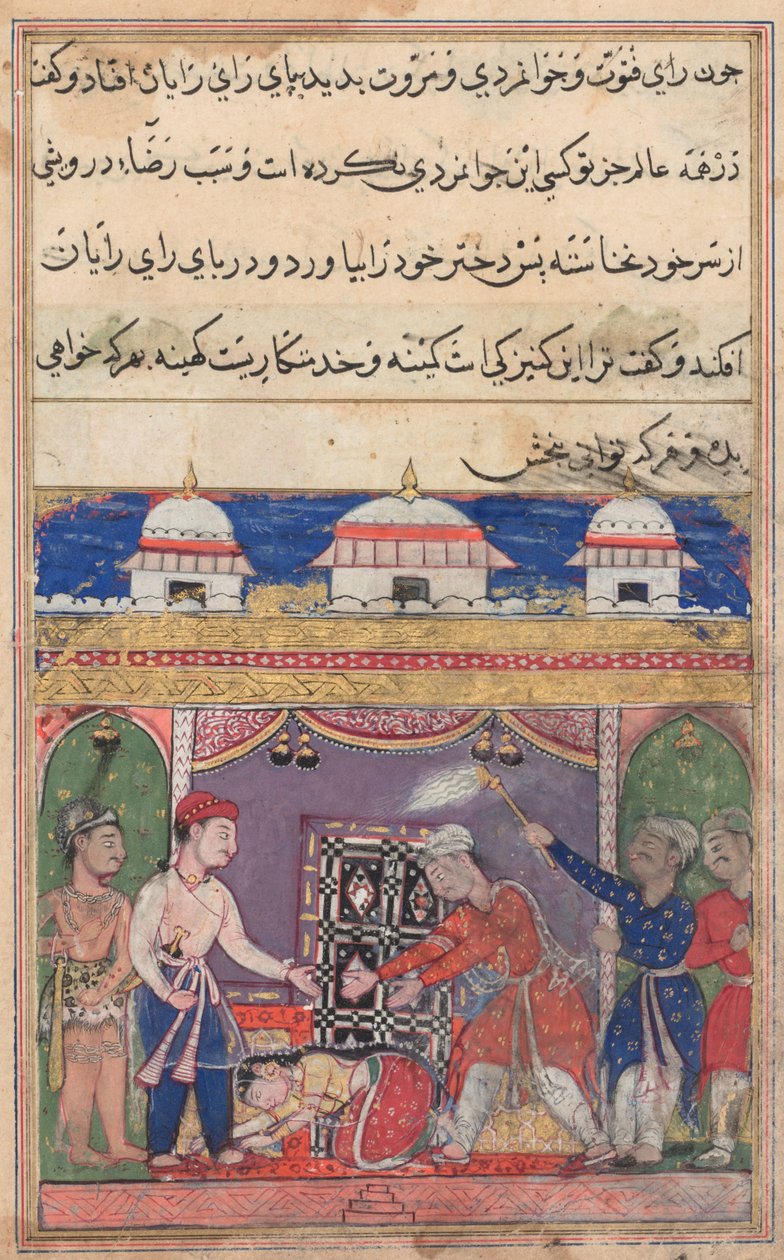 چون رای فتوت و جوانمردی و مروت بدید بپای رای رایان افتاد و کفت
در همه عالم جز تو کسی این جوانمردی نکرده است و سبب رضاء درویشی
از سر خود نخاسته پس دختر خود را بیاورد و در پای رای رایان
افکند و کفت ترا این کنیزکی است کمینه و خدمتکاریست کهینه بهر که خواهی
بده و هر که توانی ببخش